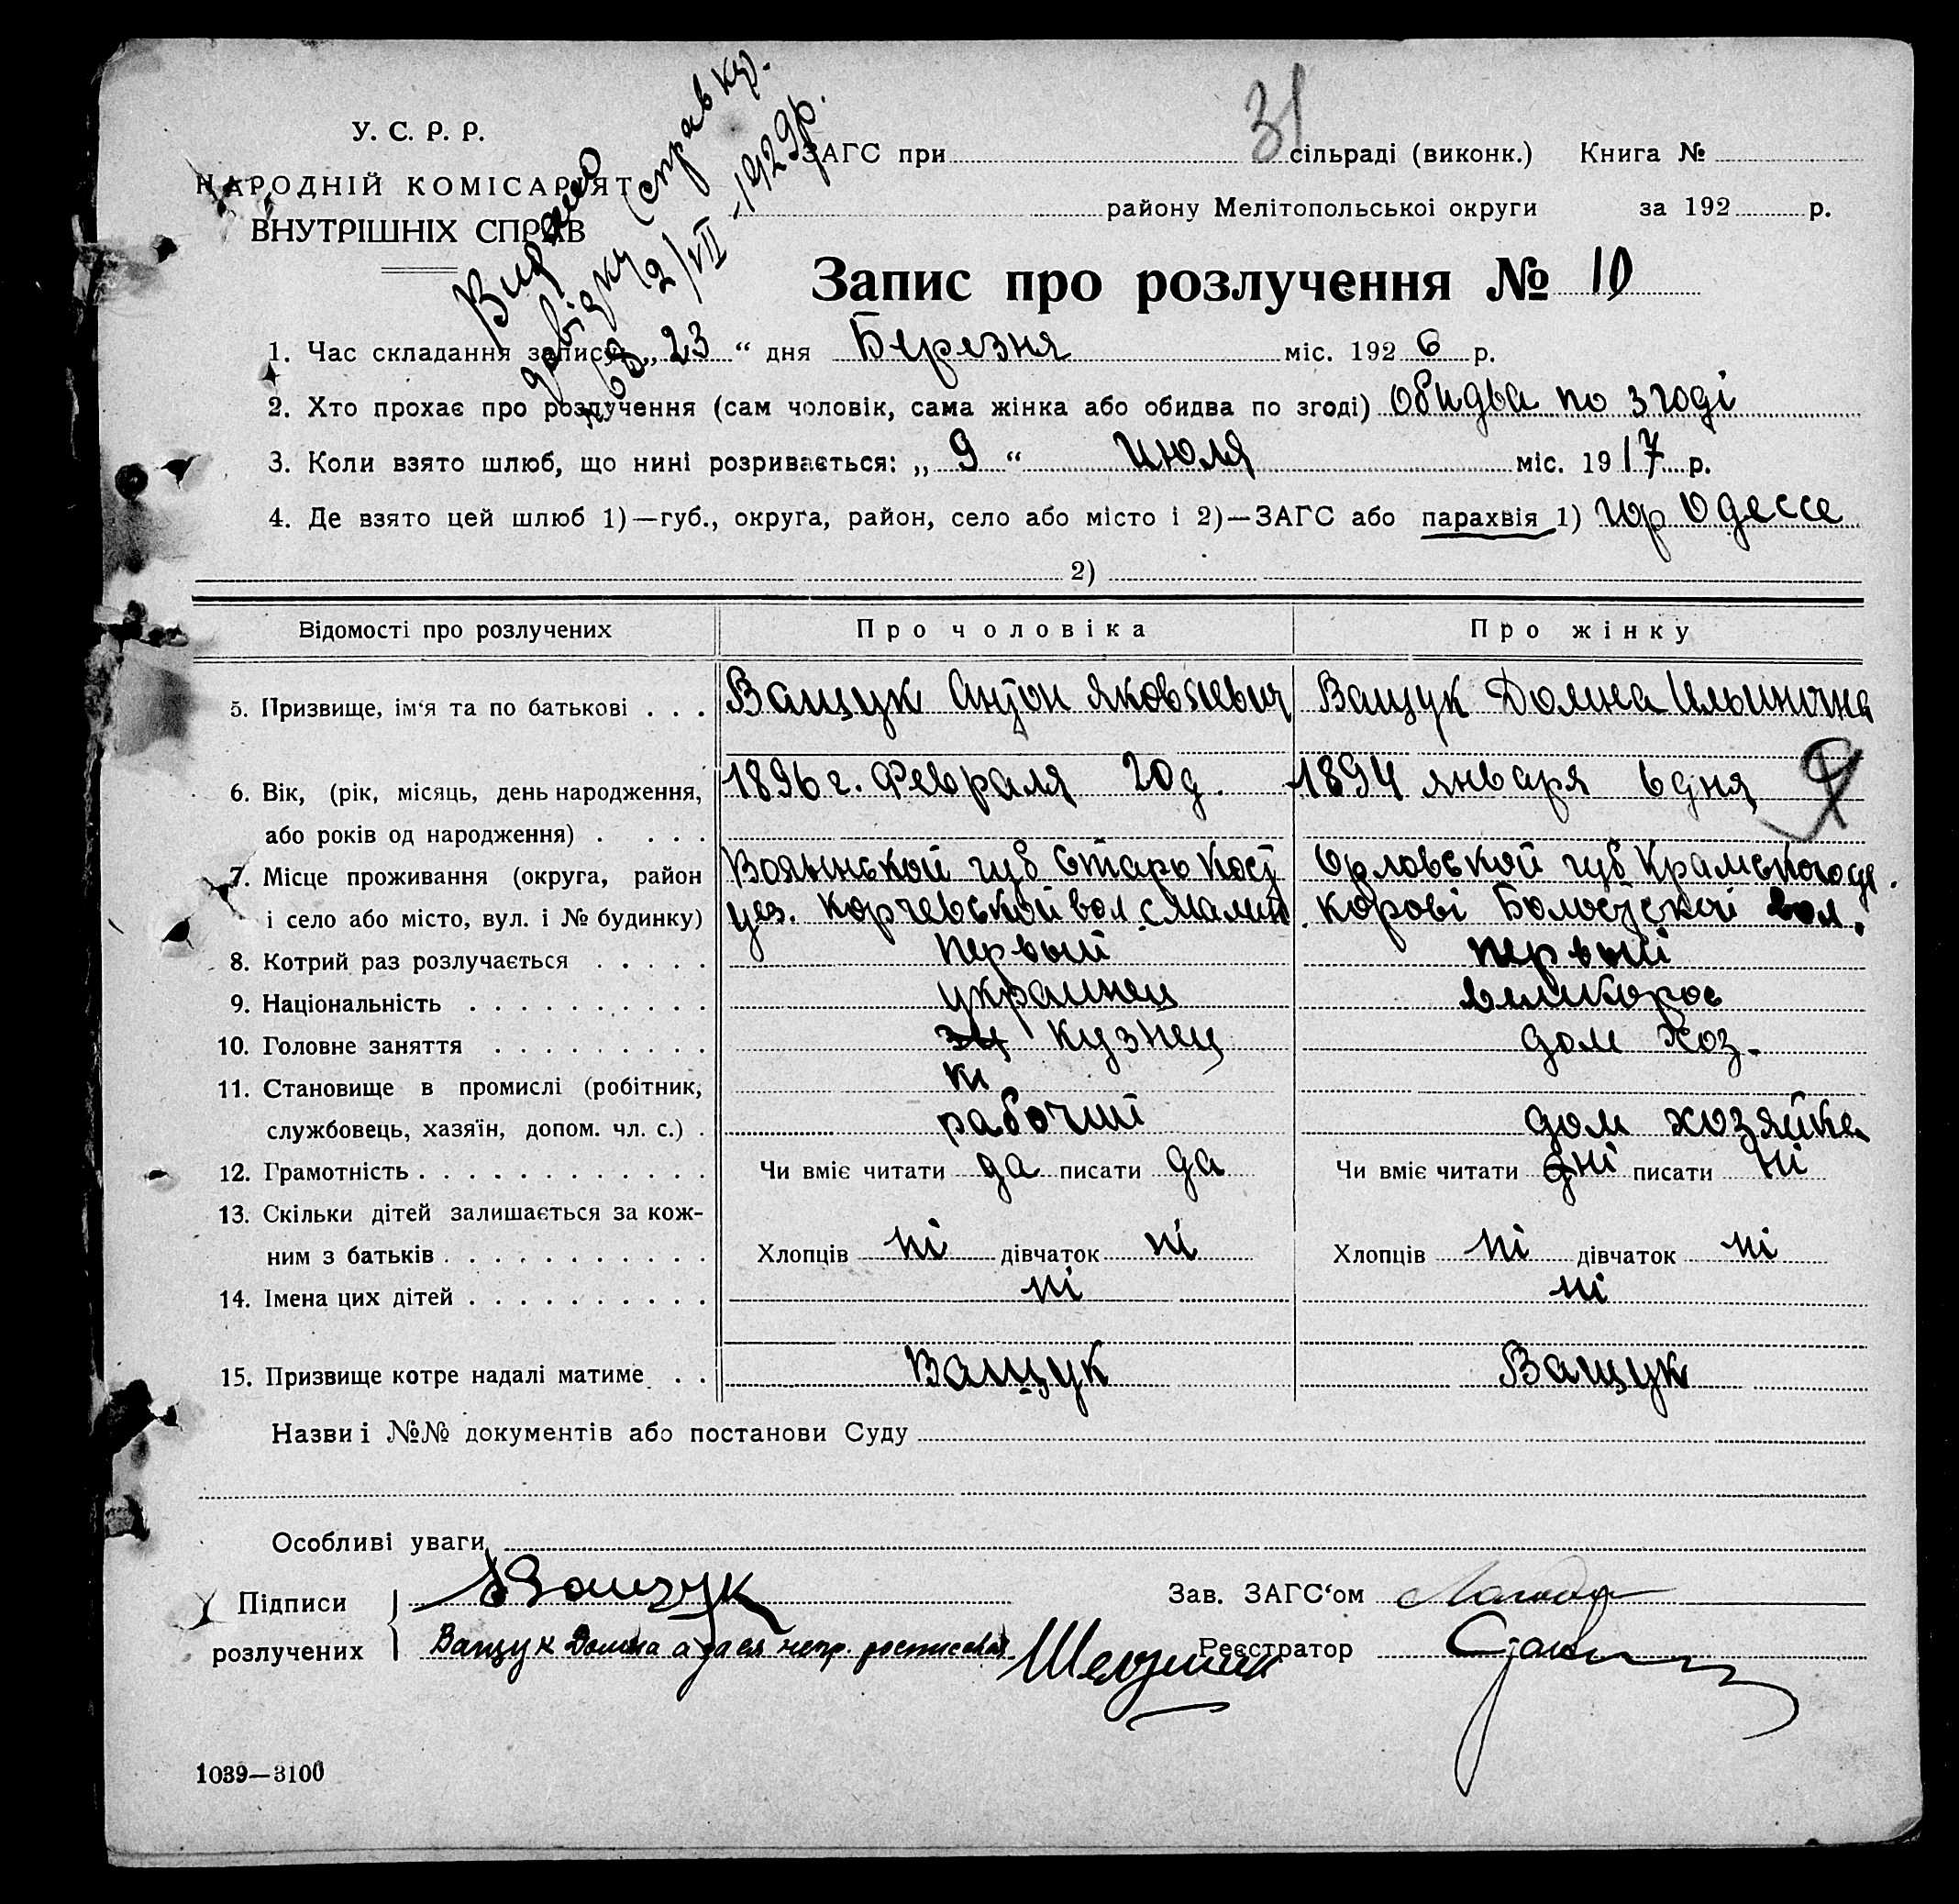 31
У. С. Р. Р.
НАРОДНІЙ КОМІСАРІЯТ
ВНУТРІШНІХ СПРАВ
Видано
довідку (справку).
2/VII - 1929р.
ЗАГС при сільраді (виконк.) Книга №
району Мелітопольскої округи за 192 р.
Запис про розлучення № 10
1. Час складання запису „ 23 “ дня Березня міс. 192 6 р.
2. Хто прохає про розлучення (сам чоловік, сама жінка або обидва по згоді) Обидва по згоді
3. Коли взято шлюб, що нині розривається: „ 9 “ июля міс. 19 17 р.
4. Де взято цей шлюб 1)—губ., округа, район, село або місто і 2)—ЗАГС або парахвія 1) гор Одессе
2)
Відомості про розлучених Про чоловіка Про жінку
5. Призвище, ім‘я та по батькові . . . Ващук Антон Яковлевич Ващук Домна Ильинична
6. Вік, (рік, місяць, день народження, 1896 г. Февраля 20 д. 1894 января 6 дня
або років од народження) . . . .
7. Місце проживання (округа, район Волынской губ Старо Конст Орловской губ
і село або місто, вул. і № будинку) уез. Корчевской вол с Малин вол.
8. Котрий раз розлучається . . . . . первый первый
9. Національність . . . . . . . . . . украинец великорос
10. Головне заняття . . . . . . . . кузнец дом хоз.
11. Становище в промислі (робітник,
службовець, хазяїн, допом. чл. с.) . рабочий дом хозяйка
12. Грамотність . . . . . . . . . . . . Чи вміє читати да писати да Чи вміє читати ні писати ні
13. Скільки дітей залишається за кож-
ним з батьків . . . . . . . . . . . Хлопців ні дівчаток ні Хлопців ні дівчаток ні
14. Імена цих дітей . . . . . . . . . . ні ні
15. Призвище котре надалі матиме . . Ващук Ващук
Назви і №№ документів або постанови Суду
Особливі уваги
Підписи Ващук Зав. ЗАГС‘ом
розлучених Ващук Домна а за ея непр. росписался Реєстратор
1039—3100